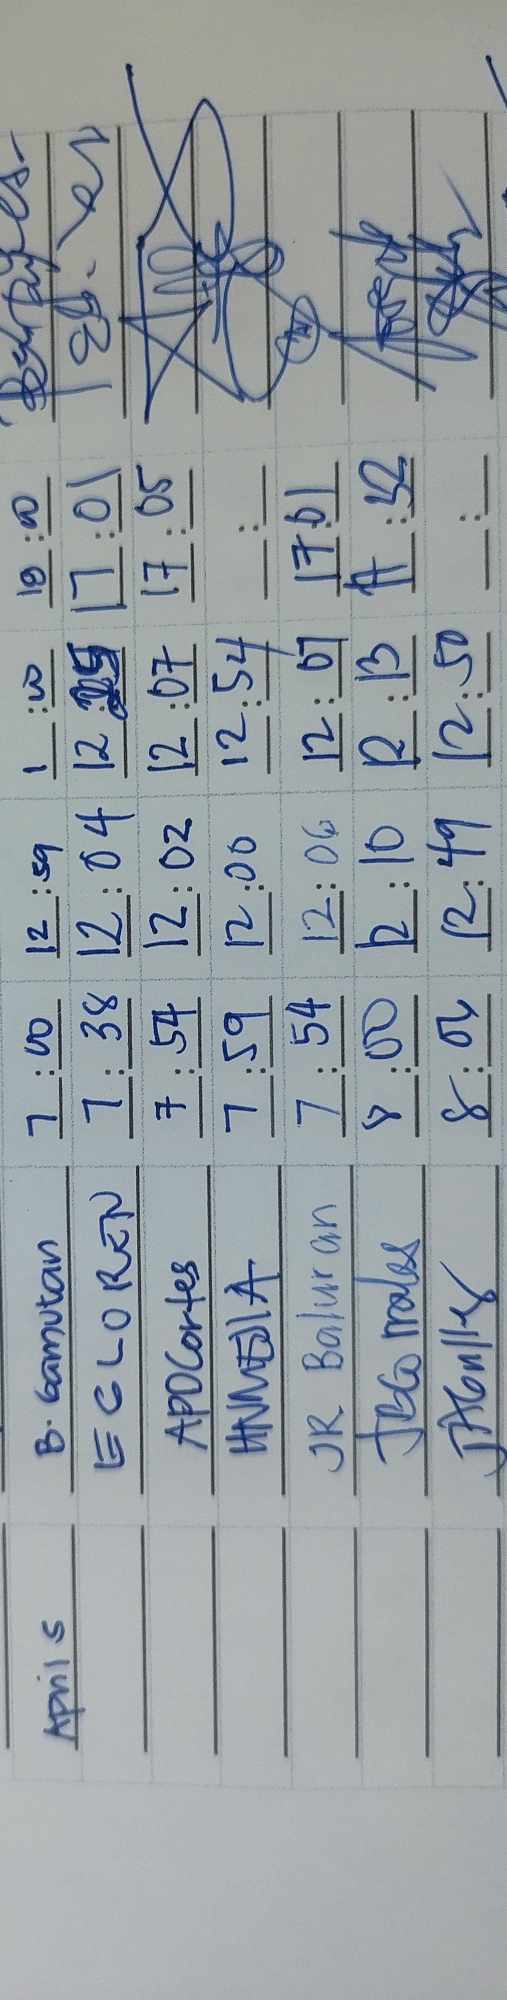 April 5 B. Gamutan 7:00 12:59 1:00 19:00
EGLOREN 7:38 12:04 12:25 17:01
APDCortes 7:54 12:02 12:07 17:05
HNMEJIA 7:59 12:06 12:54
JR Baluran 7:54 12:06 12:07 17:01
8:00 12:10 12:13 17:32
8:02 12:49 12:50